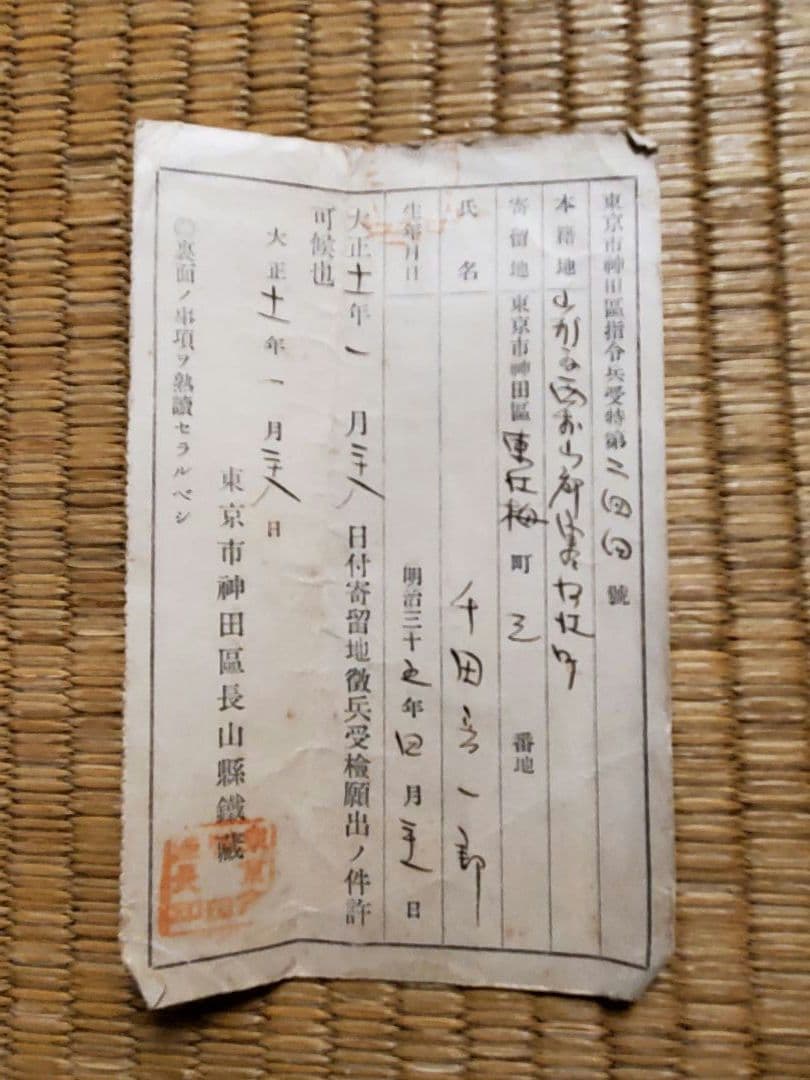 東京市神田區指令兵受特第二四四號
本籍地
寄留地 東京市神田區東紅梅町 三 番地
氏名 千田 一郎
生年月日 明治三十五年四月 日
大正十一年一月二十八日付寄留地徵兵受檢願出ノ件許
可候也
大正十一年一月二十八日
東京市神田區長山縣鐵藏
裏面ノ事項ヲ熟讀セラルベシ